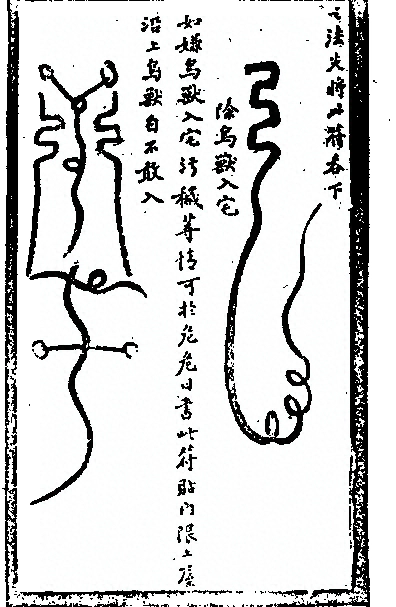 法將此符吞下
除鳥獸入宅
如嫌鳥獸入宅污穢等情可於危危日書此符貼門限上屋
沿上鳥獸自不敢入